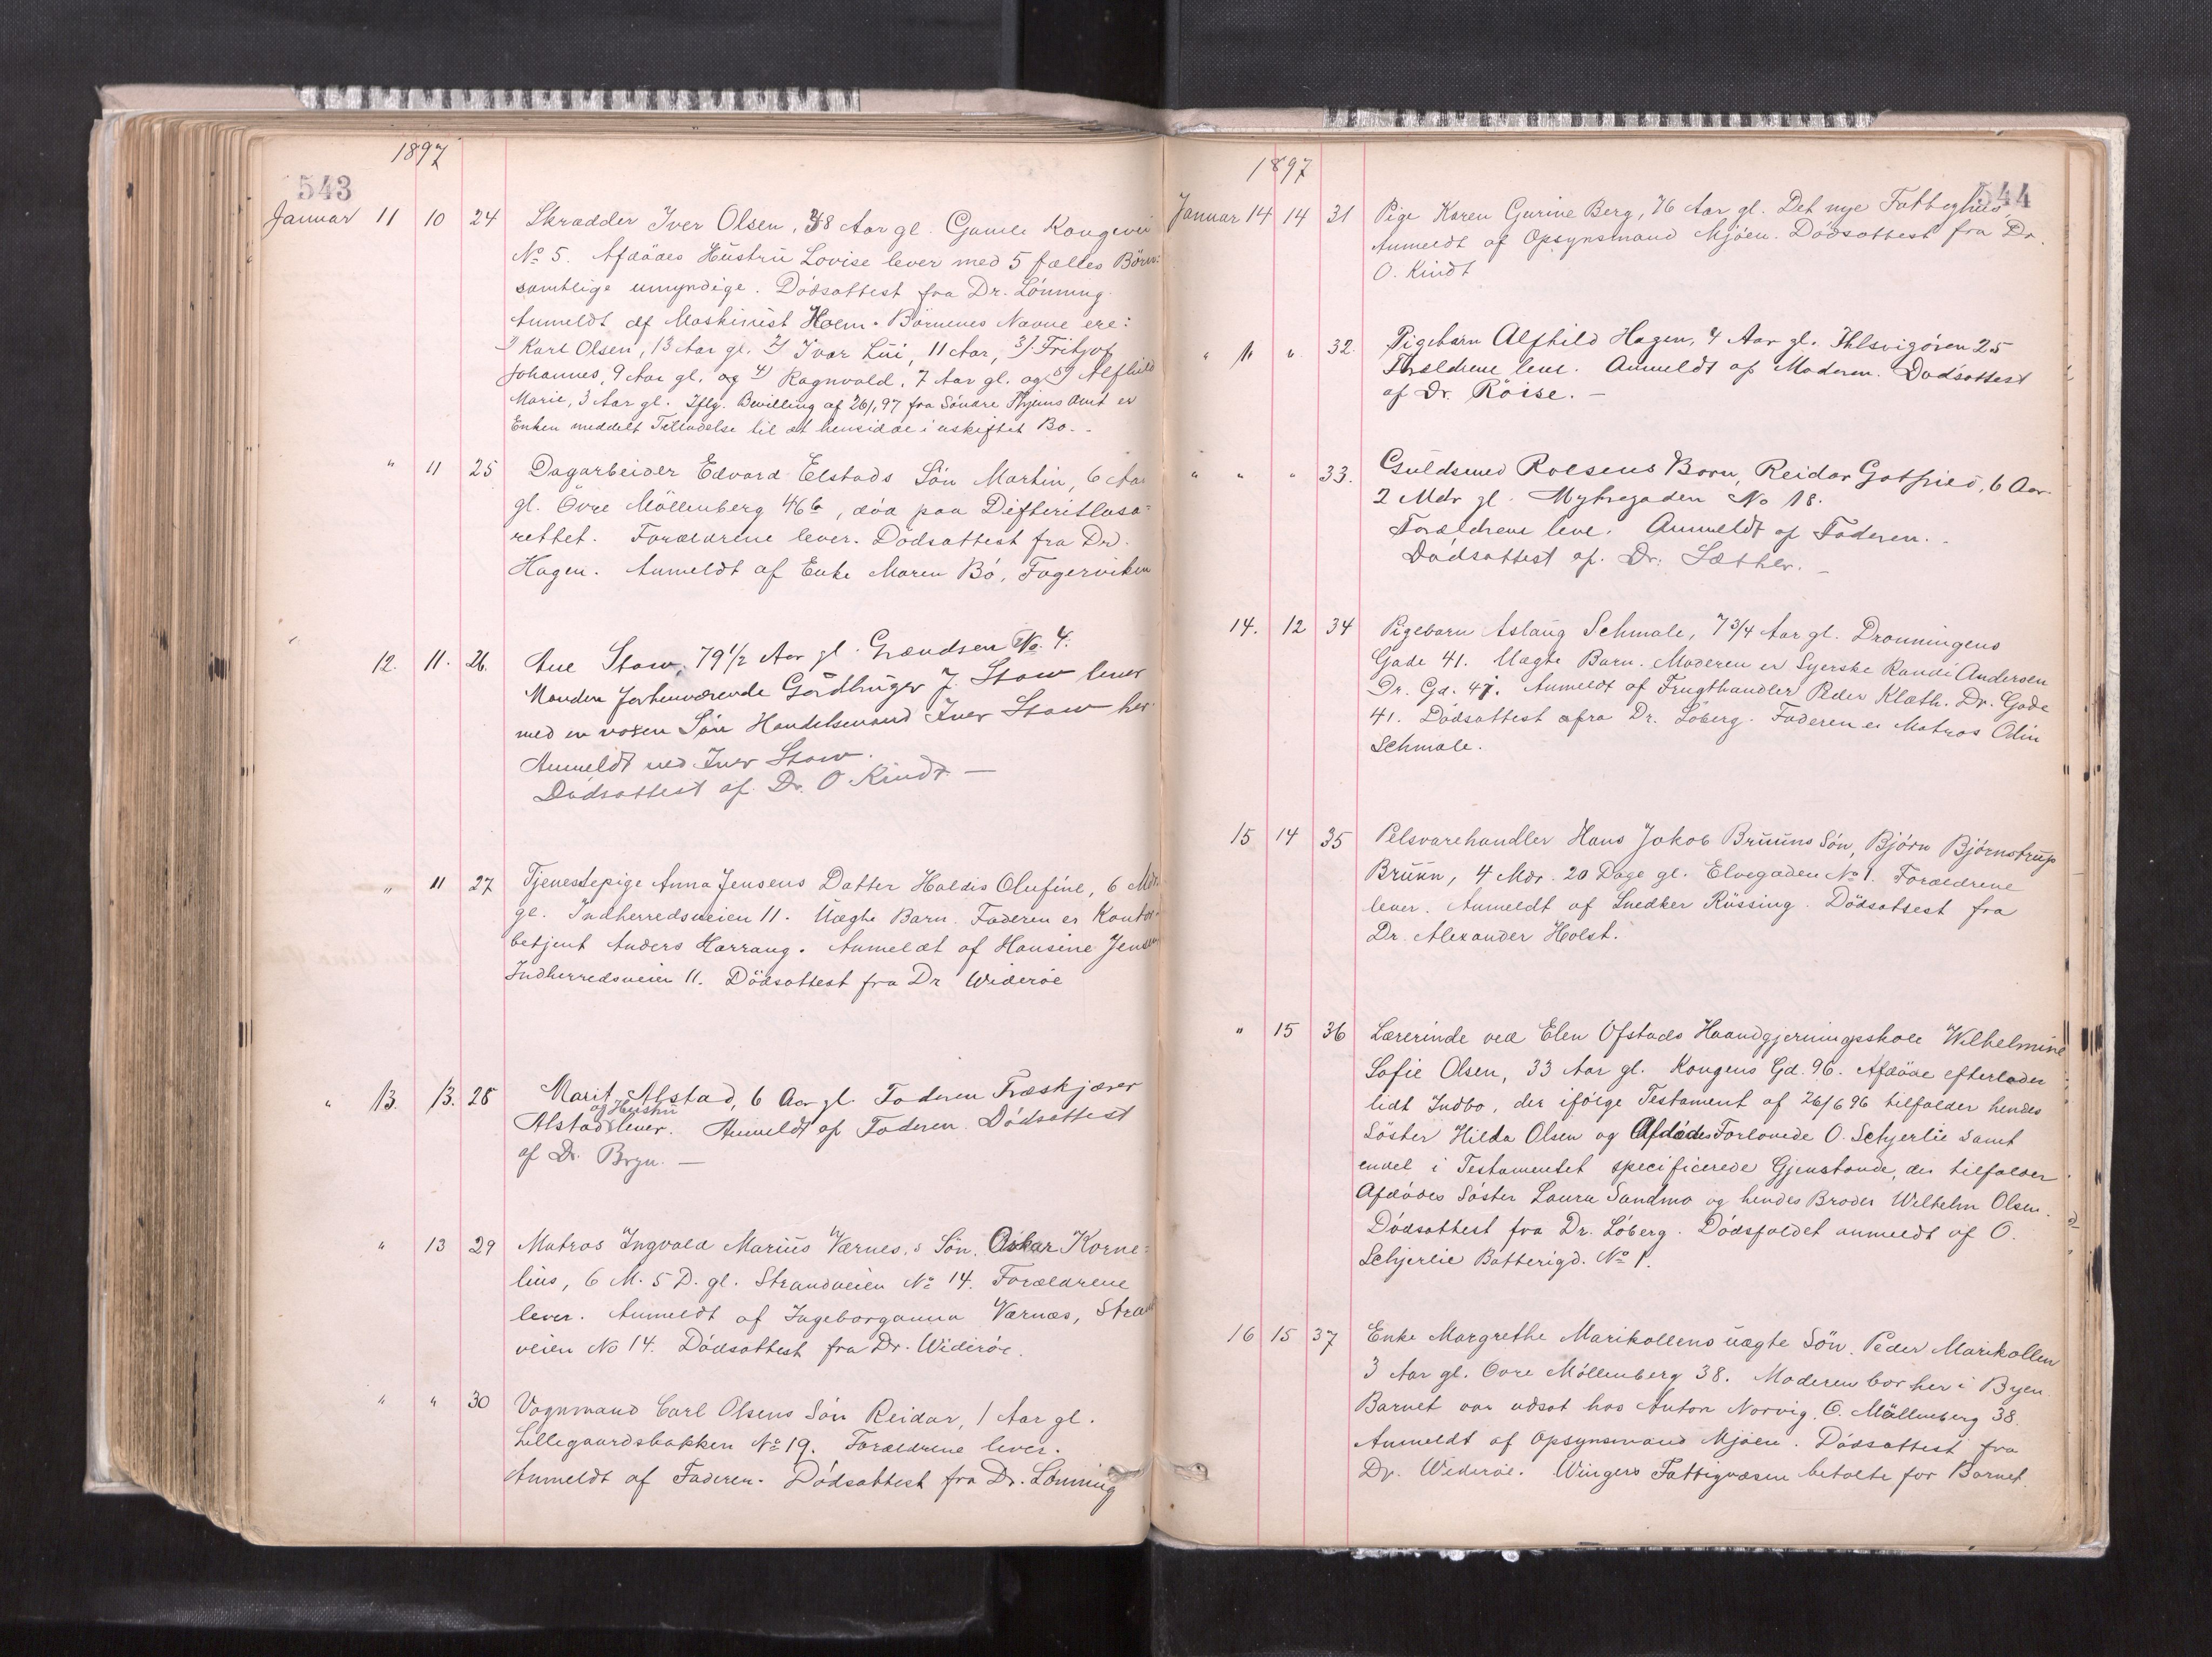 1897
543
Januar 11 10 24 Skrædder Iver Olsen, 38 Aar gl. Gamle Kongevei
No 5. Afdödes Hustru Lovise lever med 5 fælles Börn:
samtlige umyndige. Dödsattest fra Dr. Lönning.
Anmeldt af Maskinist Holm. Börnenes Navne ere:
1) Karl Olsen, 13 Aar gl. 2) Ivar Lui, 11 Aar, 3) Fritjof
Johannes, 9 Aar gl. og 4) Ragnvald, 7 Aar gl. og 5) Alfhild
Marie, 3 Aar gl. Iflg. Bevilling af 26/1,97 fra Söndre Thjems Amt er
Enken meddelt Tilladelse til at hensidde i uskiftet Bo.
" 11 25 Dagarbeider Edvard Elstads Sön Martin, 6 Aar
gl. Övre Möllenberg 46b, död paa Difteritlasa=
rettet. Forældrene lever. Dödsattest fra Dr.
Hagen. Anmeldt af Enke Maren Bö, Fagerviken
12. 11. 26. Ane Stow, 79 1/2 Aar gl. Grændsen No. 4.
Manden forhenværende Gårdbruger J. Stow lever
med en voxen Sön Handelsmand Iver Stow her.
Anmeldt ved Iver Stow.
Dödsattest af Dr. O Kindt. —
" 11 27 Tjenestepige Anna Jensens Datter Haldis Olufine, 6 Mdr
gl. Indherredsveien 11. Uægte Barn. Faderen er Kontor-
betjent Anders Harrang. Anmeldt af Hansine Jensen
Indherredsveien 11. Dödsattest fra Dr Wideröe
" 13. 13. 28 Marit Alstad, 6 Aar gl. Faderen Træskjærer
og Hustru
Alstad lever. Anmeldt af Faderen. Dödsattest
af Dr. Bryn. —
" 13 29 Matros Ingvald Marius Værnes,s Sön. Oskar Korne=
lius, 6 M. 5 D. gl. Strandveien No 14. Forældrene
lever. Anmeldt af Ingeborganna Værnæs, Strand
veien No 14. Dödsattest fra Dr. Wideröe.
" " 30 Vognmand Carl Olsens Sön Reidar, 1 Aar gl.
Lillegaardsbakken No 19. Forældrene lever.
Anmeldt af Faderen. Dödsattest fra Dr. Lönning
1897
544
Januar 14 14 31 Pige Karen Gurine Berg, 76 Aar gl. Det nye Fattighus,
Anmeldt af Opsynsmand Mjöen. Dödsattest fra Dr.
O. Kindt
" 14 " 32. Pigebarn Alfhild Hagen, 4 Aar gl. Ihlsvigören 25
Forældrene leve. Anmeldt af Moderen. Dødsattest
af Dr. Röise. —
" " " 33. Guldsmed Roesens Barn, Reidar Gotfried, 6 Aar
2 Mdr gl. Mytregaden No 18.
Forældrene leve. Anmeldt af Faderen.
Dødsattest af. Dr. Sæther. —
14. 12 34 Pigebarn Aslaug Schmale, 7 3/4 Aar gl. Dronningens
Gade 41. Uægte Barn. Moderen er Syerske Randi Andersen
Dr. Gd. 41. Anmeldt af Frugthandler Peder Klæth. Dr. Gade
41. Dödsattest fra Dr. Löberg. Faderen er Matros Odin
Schmale.
15 14 35 Pelsvarehandler Hans Jakob Bruuns Sön, Björn Björnstrup
Bruun, 4 Mdr. 20 Dage gl. Elvegaden No 1. Forældrene
lever. Anmeldt af Snedker Rüssing. Dödsattest fra
Dr. Alexander Holst.
" 15 36 Lærerinde ved Elen Ofstads Haandgjerningsskole Wilhelmine
Sofie Olsen, 33 Aar gl. Kongens Gd. 96. Afdöde efterlader
lidt Indbo, der ifölge Testament af 26/6 96 tilfalder hendes
Söster Hilda Olsen og Afdødes Forlovede O. Schjerlie samt
endel i Testamentet specificerede Gjenstande, der tilfalder
Afdödes Söster Laura Sandmo og hendes Broder Wilhelm Olsen.
Dödsattest fra Dr. Löberg. Dödsfaldet anmeldt af O.
Schjerlie Batterigd. No 1.
16 15 37 Enke Margrethe Marikollens uægte Sön. Peder Marikollen
3 Aar gl. Övre Möllenberg 38. Moderen bor her i Byen.
Barnet var udsat hos Anton Norvig. Ö. Möllenberg 38.
Anmeldt af Opsynsmand Mjöen. Dödsattest fra
Dr. Wideröe. Wingers Fattigvæsen betalte for Barnet.